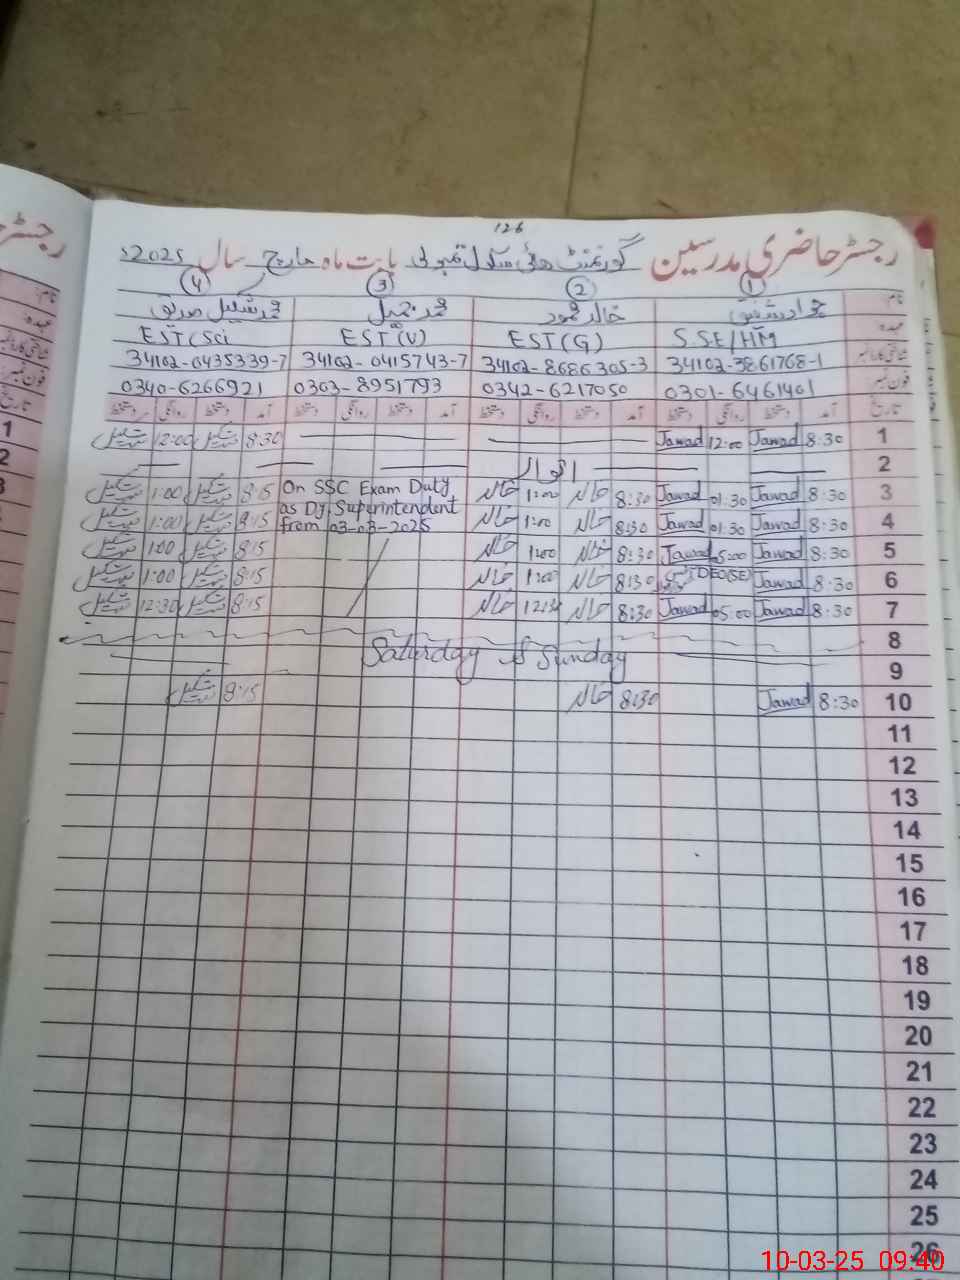 126
رجسٹر حاضری مدرسین گورنمنٹ ہائی سکول بابت ماہ مارچ سال 2025ء
① ② ③ ④
نام: جواد شفیق خالد محمود محمد جمیل محمد شکیل صدیق
عہدہ: SSE/HM EST(G) EST(V) EST(Sci
شناختی کارڈ نمبر 34102-3861768-1 34102-8686305-3 34102-0415743-7 34102-0435339-7
فون نمبر 0301-6461401 0342-6217050 0303-8951793 0340-6266921
تاریخ آمد دستخط روانگی دستخط آمد دستخط روانگی دستخط آمد دستخط روانگی دستخط آمد دستخط روانگی دستخط
1 8:30 Jawad 12:00 Jawad 8:30 شکیل 12:00 شکیل
2 اتوار
3 8:30 Jawad 01:30 Jawad 8:30 خالد 1:00 خالد On SSC Exam Duty 8:15 شکیل 1:00 شکیل
4 8:30 Jawad 01:30 Jawad 8:30 خالد 1:00 خالد as Dy. Superintendent from 03-03-2025 8:15 شکیل 1:00 شکیل
5 8:30 Jawad 5:00 Jawad 8:30 خالد 1:00 خالد 8:15 شکیل 1:00 شکیل
6 8:30 Jawad DEO(SE) 8:30 خالد 1:00 خالد 8:15 شکیل 1:00 شکیل
7 8:30 Jawad 05:00 Jawad 8:30 خالد 12:30 خالد 8:15 شکیل 12:30 شکیل
8
Saturday & Sunday
9
10 8:30 Jawad 8:30 خالد 8:15 شکیل
11
12
13
14
15
16
17
18
19
20
21
22
23
24
25
26
10-03-25 09:40
رجسٹر
نام:
1
2
3